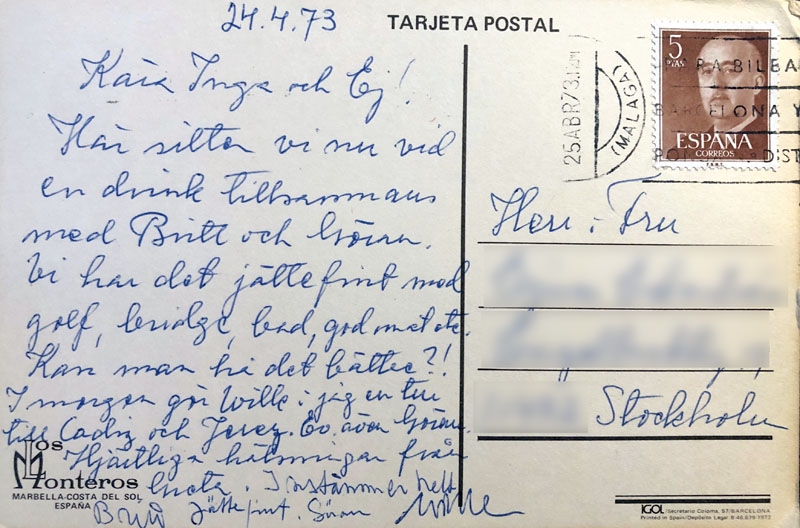 24.4.73
TARJETA POSTAL
Kära Inga och Ej!
Här sitter vi nu vid
en drink tillsammans
med Britt och Göran.
Vi har det jättefint med
golf, bridge, bad, god mat etc.
Kan man ha det bättre?!
I morgon gör Wille & jag en tur
till Cadiz och Jerez. Ev. även Göran.
Hjärtliga hälsningar från
Greta. Instämmer helt
Britt Jättefint. Göran Wille
Los
Monteros
MARBELLA-COSTA DEL SOL
ESPAÑA
25ABR73
(MALAGA)
5
PTAS
ESPAÑA
CORREOS
F.N.M.T.
PARA BILBAO
BARCELONA Y
Herr & Fru
Stockholm
IGOL /Secretario Coloma, 57/BARCELONA
Printed in Spain/Depósito Legal